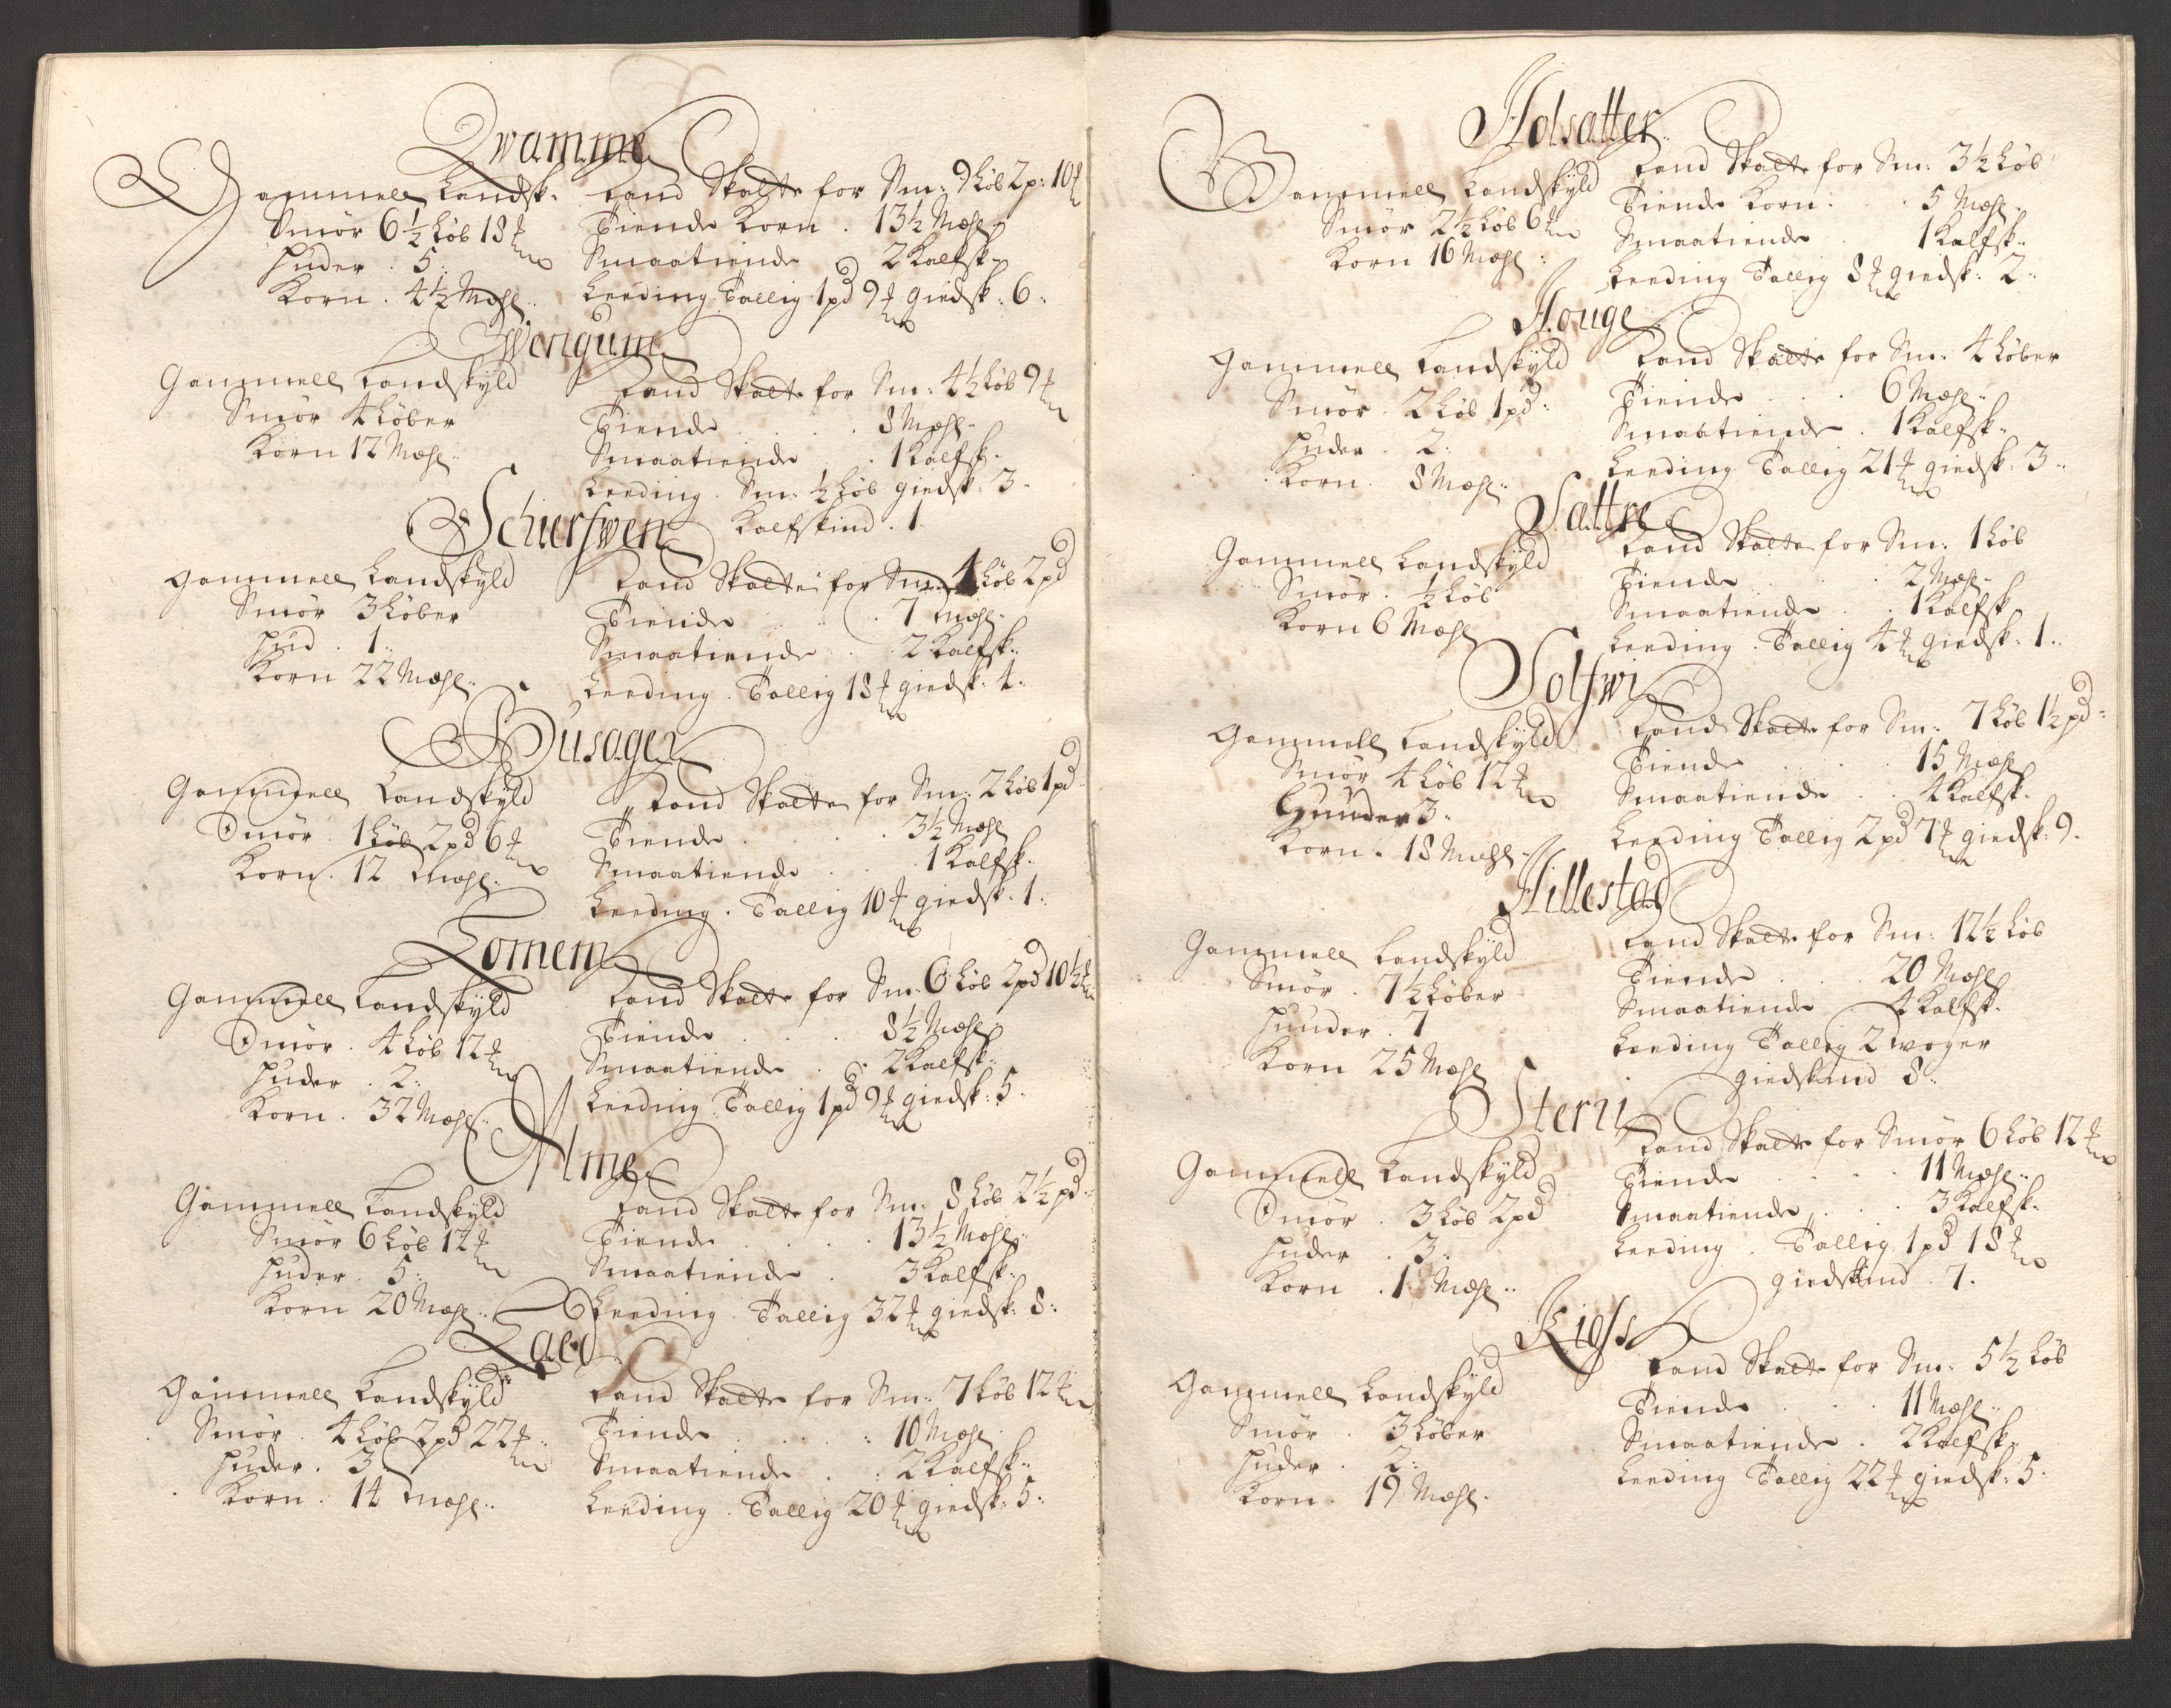 Qwamme
Gammell Landsk:
Smör 6½ Löb 18 ℔
Huder . 5 :
Korn . 4½ Mæhl ..
Land Skatte for Sm: 9 Löb 2 p: 10 ℔
Tiende Korn . 13½ Mæhl
Smaatiende 2 Kalfsk:
Leeding Tallig 1 pd 9 ℔ giedsk: 6 :
Wengum
Gammell Landskyld
Smör 4 Löber
Korn 12 Mæhl ..
Land Skatte for Sm: 4½ Löb 9 ℔
Tiende . . . 8 Mæhl ..
Smaatiende . 1 Kalfsk.
Leeding . Sm: ½ Löb giedsk: 3 .
Kalfskind . 1
Schierfwen
Gammell Landskyld
Smör 3 Löber
Hud . 1 ..
Korn 22 Mæhl ..
Land Skatte for Sm: 4 Löb 2 pd
Tiende . . . 7 Mæhl ..
Smaatiende . 2 Kalfsk ..
Leeding . Tallig 18 ℔ giedsk: 4 ..
Busager
Gammell Landskyld
Smör . 1 Löb 2 pd 6 ℔
Korn . 12 Mæhl .
Land Skatte for Sm: 2 Löb 1 pd
Tiende . . . 3½ Mæhl
Smaatiende . . 1 Kalfsk.
Leeding . Tallig 10 ℔ giedsk. 1 :
Lomem
Gammell Landskyld
Smör . 4 Löb 12 ℔
Huder . 2 :
Korn . 32 Mæhl ..
Land Skatte for Sm: 6 Löb 2 pd 10½ ℔
Tiende . . . 8½ Mæhl
Smaatiende . . 2 Kalfsk.
Leeding Tallig 1 pd 9 ℔ giedsk: 5 .
Alme
Gammell Landskyld
Smör 6 Löb 12 ℔
Huder . 5 :
Korn 20 Mæhl ..
Land Skatte for Sm: 8 Löb 2½ pd ..
Tiende . . . . 13½ Mæhl
Smaatiende . 3 Kalfsk.
Leeding . Tallig 32 ℔ giedsk: 8 :
Gammell Landskyld
Smör . 4 Löb 2 pd 22 ℔
Huder . 3
Korn . 14 Mæhl ..
Land Skatte for Sm: 7 Löb 12 ℔
Tiende . . . . 10 Mæhl
Smaatiende . . 2 Kalfsk ..
Leeding . Tallig 20 ℔ giedsk: 5 :
Holsatter
Gammell Landskyld
Smör 2½ Löb 6 ℔
Korn 16 Mæhl :
Land Skatte for Sm: 3½ Löb
Tiende Korn . . 5 Mæhl ..
Smaatiende . 1 Kalfsk ..
Leeding Tallig 8 ℔ giedsk: 2 ..
Houge
Gammell Landskyld
Smör . 2 Löb 1 pd :
Huder . 2 :
Korn . 8 Mæhl ..
Land Skatte for Sm: 4 Löber
Tiende . . . 6 Mæhl ..
Smaatiende . 1 Kalfsk ..
Leeding Tallig 21 ℔ giedsk: 3 ..
Sattre
Gammell Landskyld
Smör . ½ Löb
Korn 6 Mæhl
Land Skatte for Sm: 1 Löb
Tiende . . . 2 Mæhl ..
Smaatiende . . 1 Kalfsk
Leeding . Tallig 4 ℔ giedsk: 1 ..
Solfwi
Gammell Landskyld
Smör 4 Löb 12 ℔
Huuder 3 .
Korn . 18 Mæhl ..
Land Skatte for Sm: 7 Löb 1½ pd :
Tiende . . . 15 Mæhl
Smaatiende . . 4 Kalfsk.
Leeding Tallig 2 pd 7 ℔ giedsk: 9 .
Hillestad
Gammell Landskyld
Smör . 7½ Löber
Huuder . 7
Korn 25 Mæhl
Land Skatte for Sm: 12½ Löb
Tiende . . . 20 Mæhl
Smaatiende . 4 Kalfsk.
Leeding Tallig 2 woger
giedskind 8 :
Sterri
Gammell Landskyld
Smör . 3 Löb 2 pd
Huder . 3 :
Korn . 1 Mæhl ..
Land Skatte for Smör 6 Löb 12 ℔
Tiende . . . 11 Mæhl ..
Smaatiende . . . 3 Kalfsk.
Leeding . Tallig 1 pd 18 ℔
giedskind . 7 .
Gammell Landskyld
Smör . 3 Löber
Huder . 2 :
Korn . 19 Mæhl .
Land Skatte for Sm: 5½ Löb
Tiende . . . 11 Mæhl ..
Smaatiende . 2 Kalfsk
Leeding Tallig 22 ℔ giedsk: 5 :